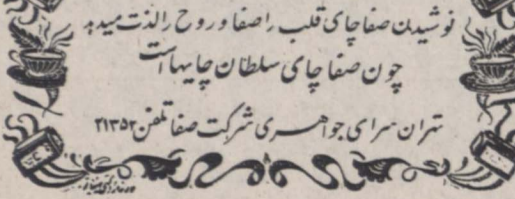 نوشیدن صفا چای قلب را صفا و روح را لذت میدهد
چون صفا چای سلطان چایها است
تهران سرای جواهری شرکت صفا تلفن ۲۱۳۵۲